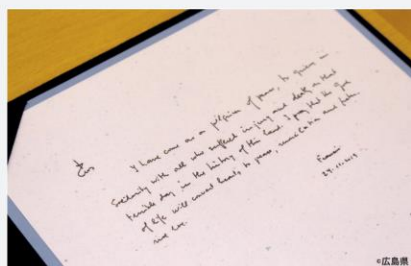 I have come as a pilgrim of peace, to grieve in
solidarity with all who suffered injury and death on that
terrible day in the history of this land. I pray that the God
of life will convert hearts to peace, reconciliation and fraternal
love.
Francis
24.11.2019
©広島県